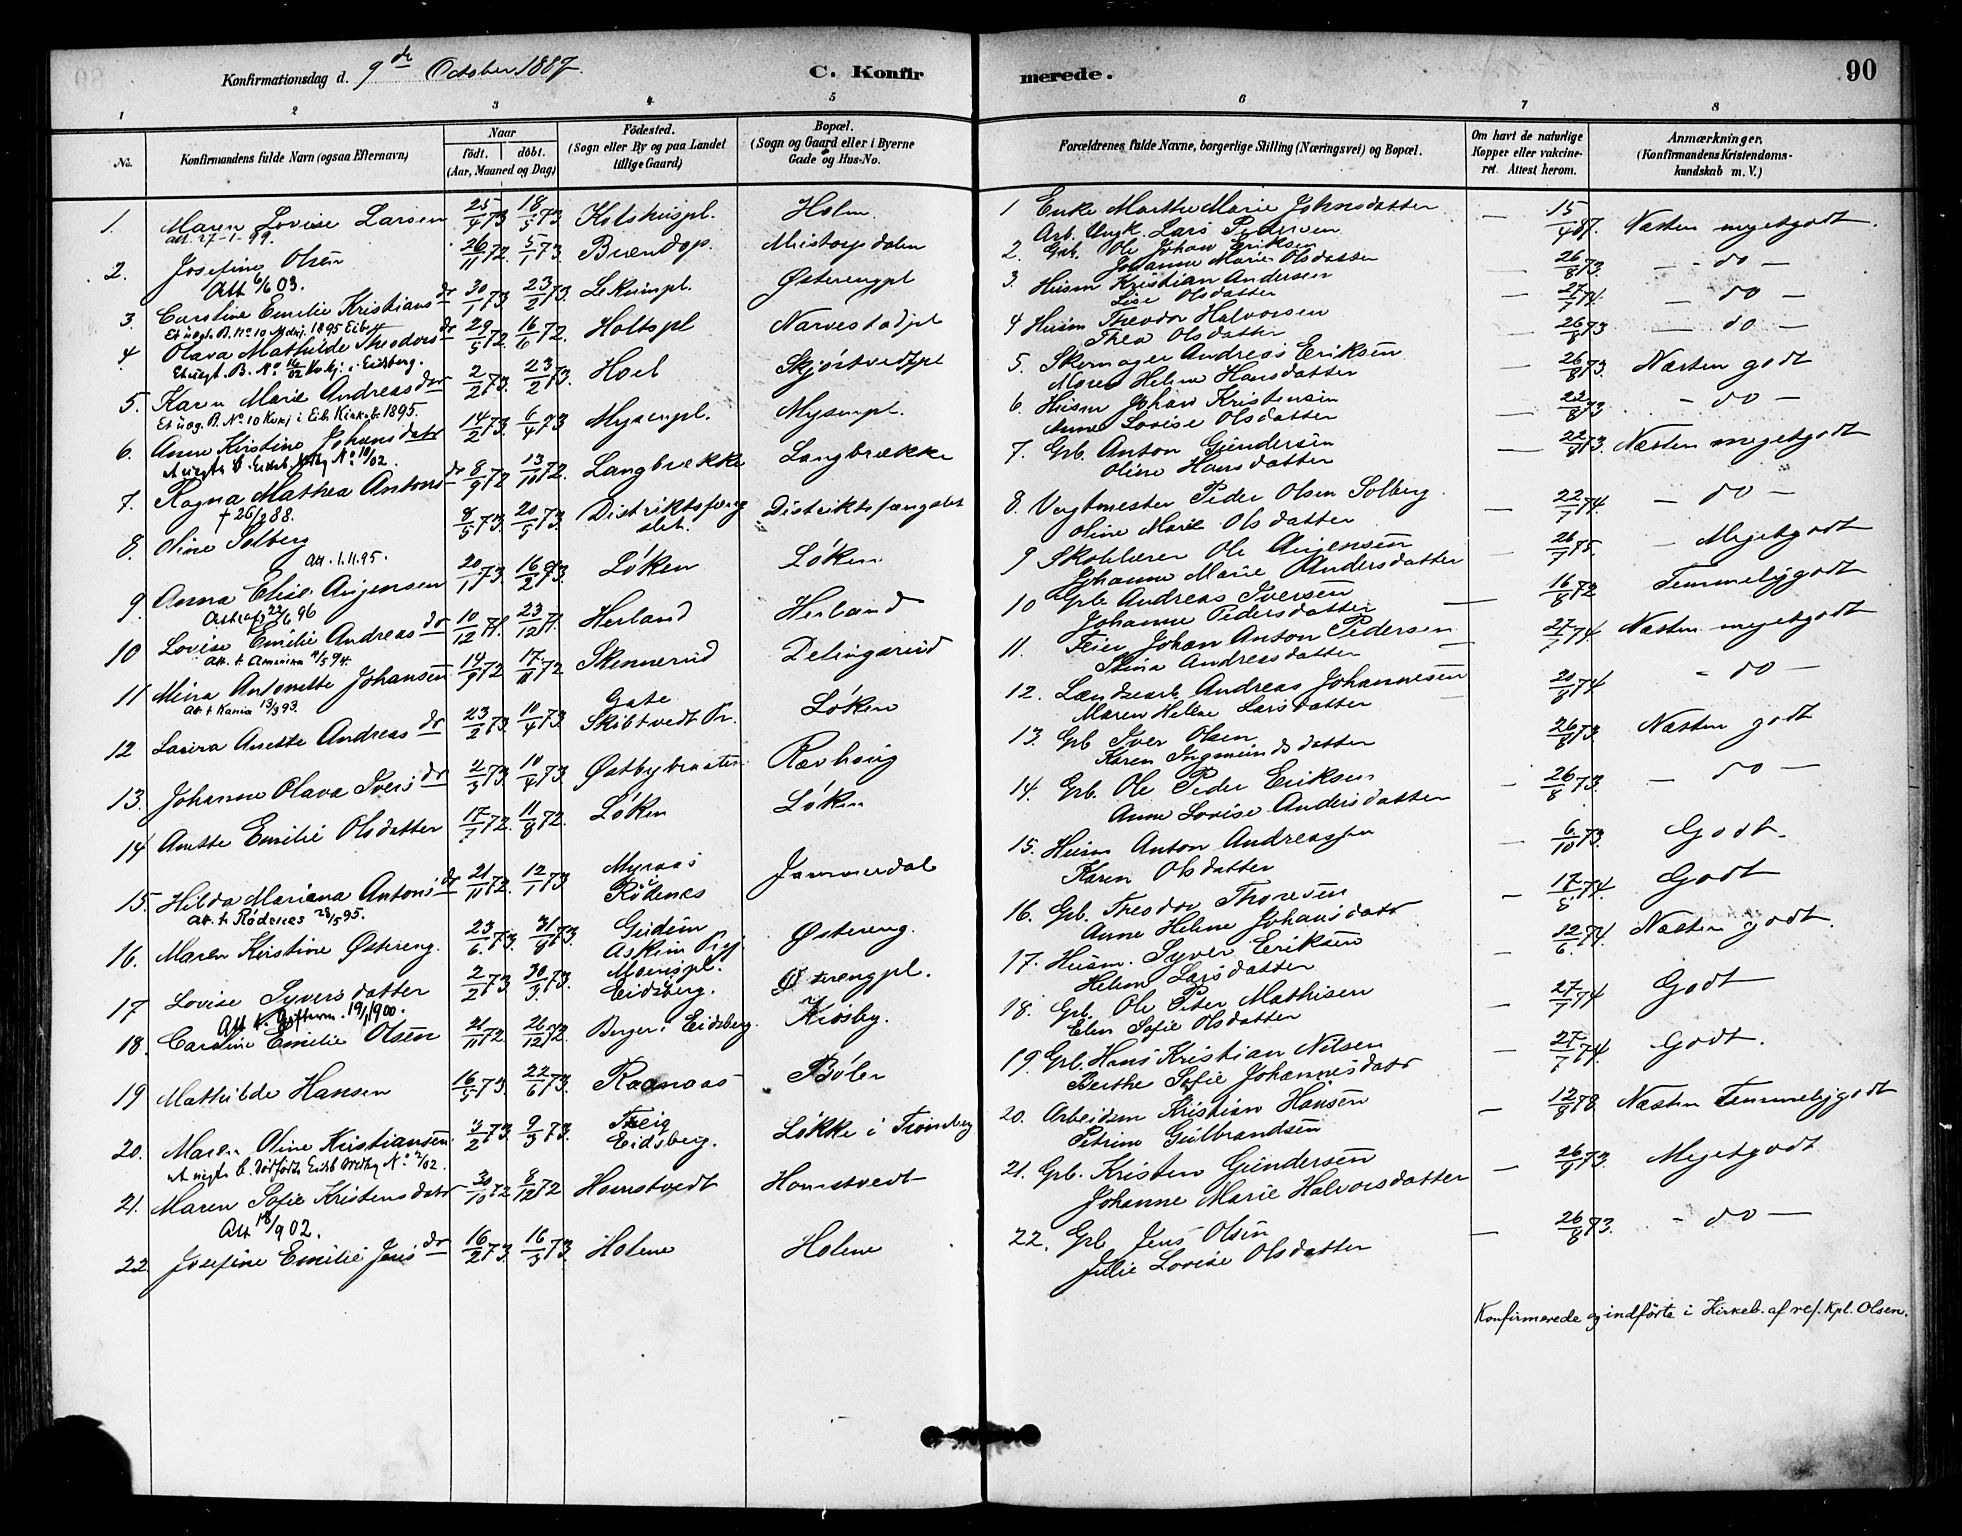 Konfirmationsdag d. 9de October 1887.
C. Konfir
merede.
90
1 2 3 4 5 6 7 8
No.
Konfirmandens fulde Navn (ogsaa Efternavn)
Naar
födt. döbt.
(Aar, Maaned og Dag)
Födested.
(Sogn eller By og paa Landet
tillige Gaard)
Bopæl.
(Sogn og Gaard eller i Byerne
Gade og Hus-No.
Forældrenes fulde Navne, borgerlige Stilling (Næringsvei) og Bopæl.
Om havt de naturlige
Kopper eller vakcine-
ret. Attest herom.
Anmærkninger.
(Konfirmandens Kristendoms-
kundskab m. V.)
1. Maren Lovise Larsen 25/4 73 18/5 73 Kolshuspl. Holm. 1 Enke Marthe Marie Johnsdatter — 15/4 87. Næsten megetgodt.
att. 27-1-99. Arb. Ungk. Lars Pedersen
2. Josefine Olsen 26/11 72. 5/1 73. Brændop. Mistorpdalen 2. Grb. Ole Johan Eriksen — 26/8 73. — do —
Att 6/6 03. Johanne Marie Olsdatter
3. Carstine Emilie Kristiansdr 30/1 73 23/2 73. Lekumpl. Østerengpl 3. Husm Kristian Andersen — 27/7 74. — do —
Lise Olsdatter
4 Olava Mathilde Theodorsdr 29/5 72. 16/6 72. Holtspl Narvestadpl 4 Husm Theodor Halvorsen — 26/8 73 — do —
Thea Olsdatter
5. Karen Marie Andreasdr 2/2 73. 23/2 73. Hoel Skjørtvedtpl 5. Skomager Andreas Eriksen — 26/8 73. Næsten godt
Maren Helene Hansdatter
6. Anne Kirstine Johansdatr 14/2 73. 6/4 73 Mysenpl. Mysenpl. 6. Husm Johan Kristensen — 22/8 73 — do —
Anne Lovise Olsdatter
7. Ragna Mathea Antonsdr 8/9 72 13/10 72. Langbrække Langbrække 7. Grb. Anton Gundersen — 22/8 73. Næsten megetgodt
† 26/2 88. Oline Hansdatter
8. Oline Solberg 8/5 73. 20/5 73. Distriktsfæng slet. Distriktsfængslet 8. Vagtmester Peder Olsen Solberg. 22/7 74 — do —
Att. 1.11.95. Oline Marie Olsdatter
9 Anna Elise Arjensen 20/1 73. 16/2 73. Løken Løken 9 Skolelærer Ole Arjensen — 26/7 75. — Megetgodt
22/6 96 Johanne Marie Andersdatter
10 Lovise Emilie Andreasdr 10/12 71. 23/12 71. Herland Herland 10 Grb. Andreas Iversen — 16/8 72 Temmeligodt
Att. t. Amerika 4/5 94. Johanne Pedersdatter
11 Mina Antonette Johansen 14/9 72. 17/11 72 Skinnerud Delingsrud 11. Feier Johan Anton Pedersen 27/7 74. Næsten megetgodt
13/3 93. Stina Andreasdatter
12 Laura Anette Andreasdr 23/2 73. 10/4 73. Gate Skibtvedt Pr. Løken 12. Landsearb. Andreas Johannesen 20/8 74 — do —
Maren Helene Larsdatter
13. Johanne Olava Iversdr 2/3 73. 10/4 73. Østbybraaten Ravhaug 13. Grb Iver Olsen 26/8 73. Næsten godt
Karen Ingmundsdatter
14 Anette Emilie Olsdatter 17/7 72. 11/8 72. Løken Løken 14. Grb. Ole Peder Eriksen — 26/8 73. — do —
Anne Lovise Andersdatter
15. Hilda Mariena Antonsdr 21/11 72. 12/1 73. Myraas i Rødenes Jammerdal 15. Husm Anton Andreassen — 6/10 73. Godt.
Att. t. Rødenes 28/5 95. Karen Olsdatter
16. Maren Kristine Østereng. 23/6. 73. 31/8 73. Guidim Askim Prgj. Østereng. 16. Grb. Theodor Thoresen — 17/8 74. Godt
Anne Helene Johansdatr
17 Lovise Syversdatter 2/2 73. 30/3. 73. Moenspl. Eidsberg. Østerengpl. 17. Husm. Syver Eriksen — 12/6. 74. Næsten godt.
19/1 1900. Helene Larsdatter
18. Caroline Emilie Olsen 21/11 72. 26/12 72. Berger i Eidsberg. Kirsby. 18. Grb. Ole Peter Mathisen — 27/7 74 Godt
Elen Sofie Olsdatter
19 Mathilde Hansen 16/5 73. 22/6 73. Raanaas Bøler 19 Grb. Hans Kristian Nilsen — 27/7 74. Godt.
Berthe Sofie Johannesdatr
20. Maren Oline Kristiansen 2/2 73. 9/3 73. Eidsberg. Løkke i Trømborg 20. Arbeidsm Kristian Hansen — 12/8 78 Næsten Temmeligodt
Petrine Gulbrandsen
21. Maren Sofie Kristensdatr 30/10 72 8/12 72 Homstvedt Homstvedt 21. Grb. Kristen Gundersen — 26/9 73. Megetgodt
Att 18/9 02. Johanne Marie Halvorsdatter
22 Josefine Emilie Jensdr 16/2 73. 16/3 73. Holene Holene 22. Grb Jens Olsen — 26/8 73. — do —
Julie Lovise Olsdatter
Konfirmerede og indførte i Kirkeb. af res. Kpl. Olsen.